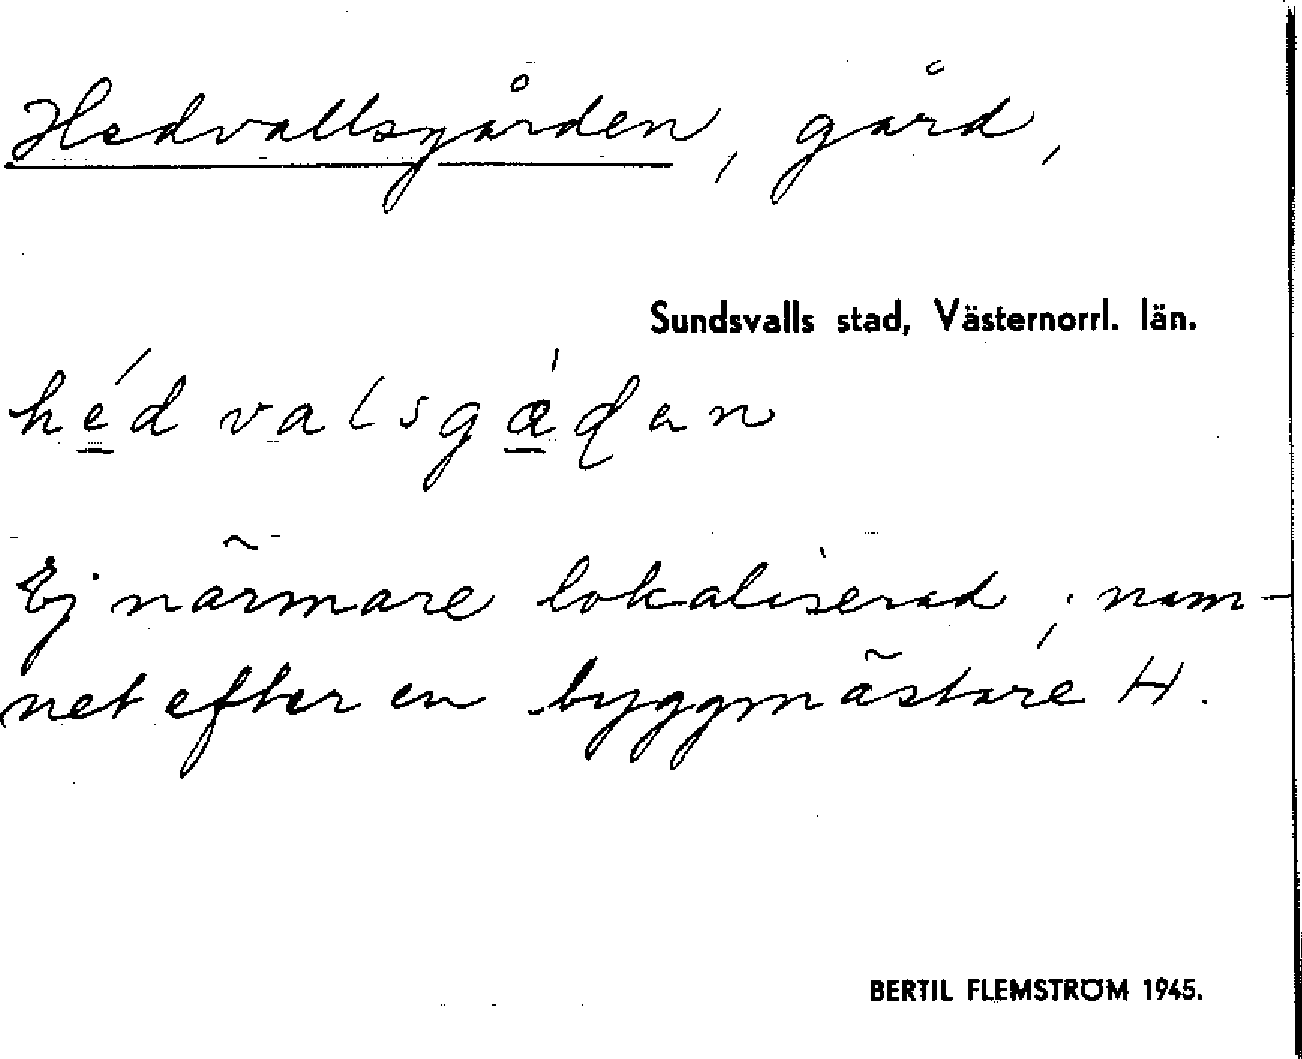 Hedvallsgården, gård,
Sundsvalls stad, Västernorrl. län.
Ej närmare lokaliserad; nam-
net efter en byggmästare H.
BERTIL FLEMSTRÖM 1945.